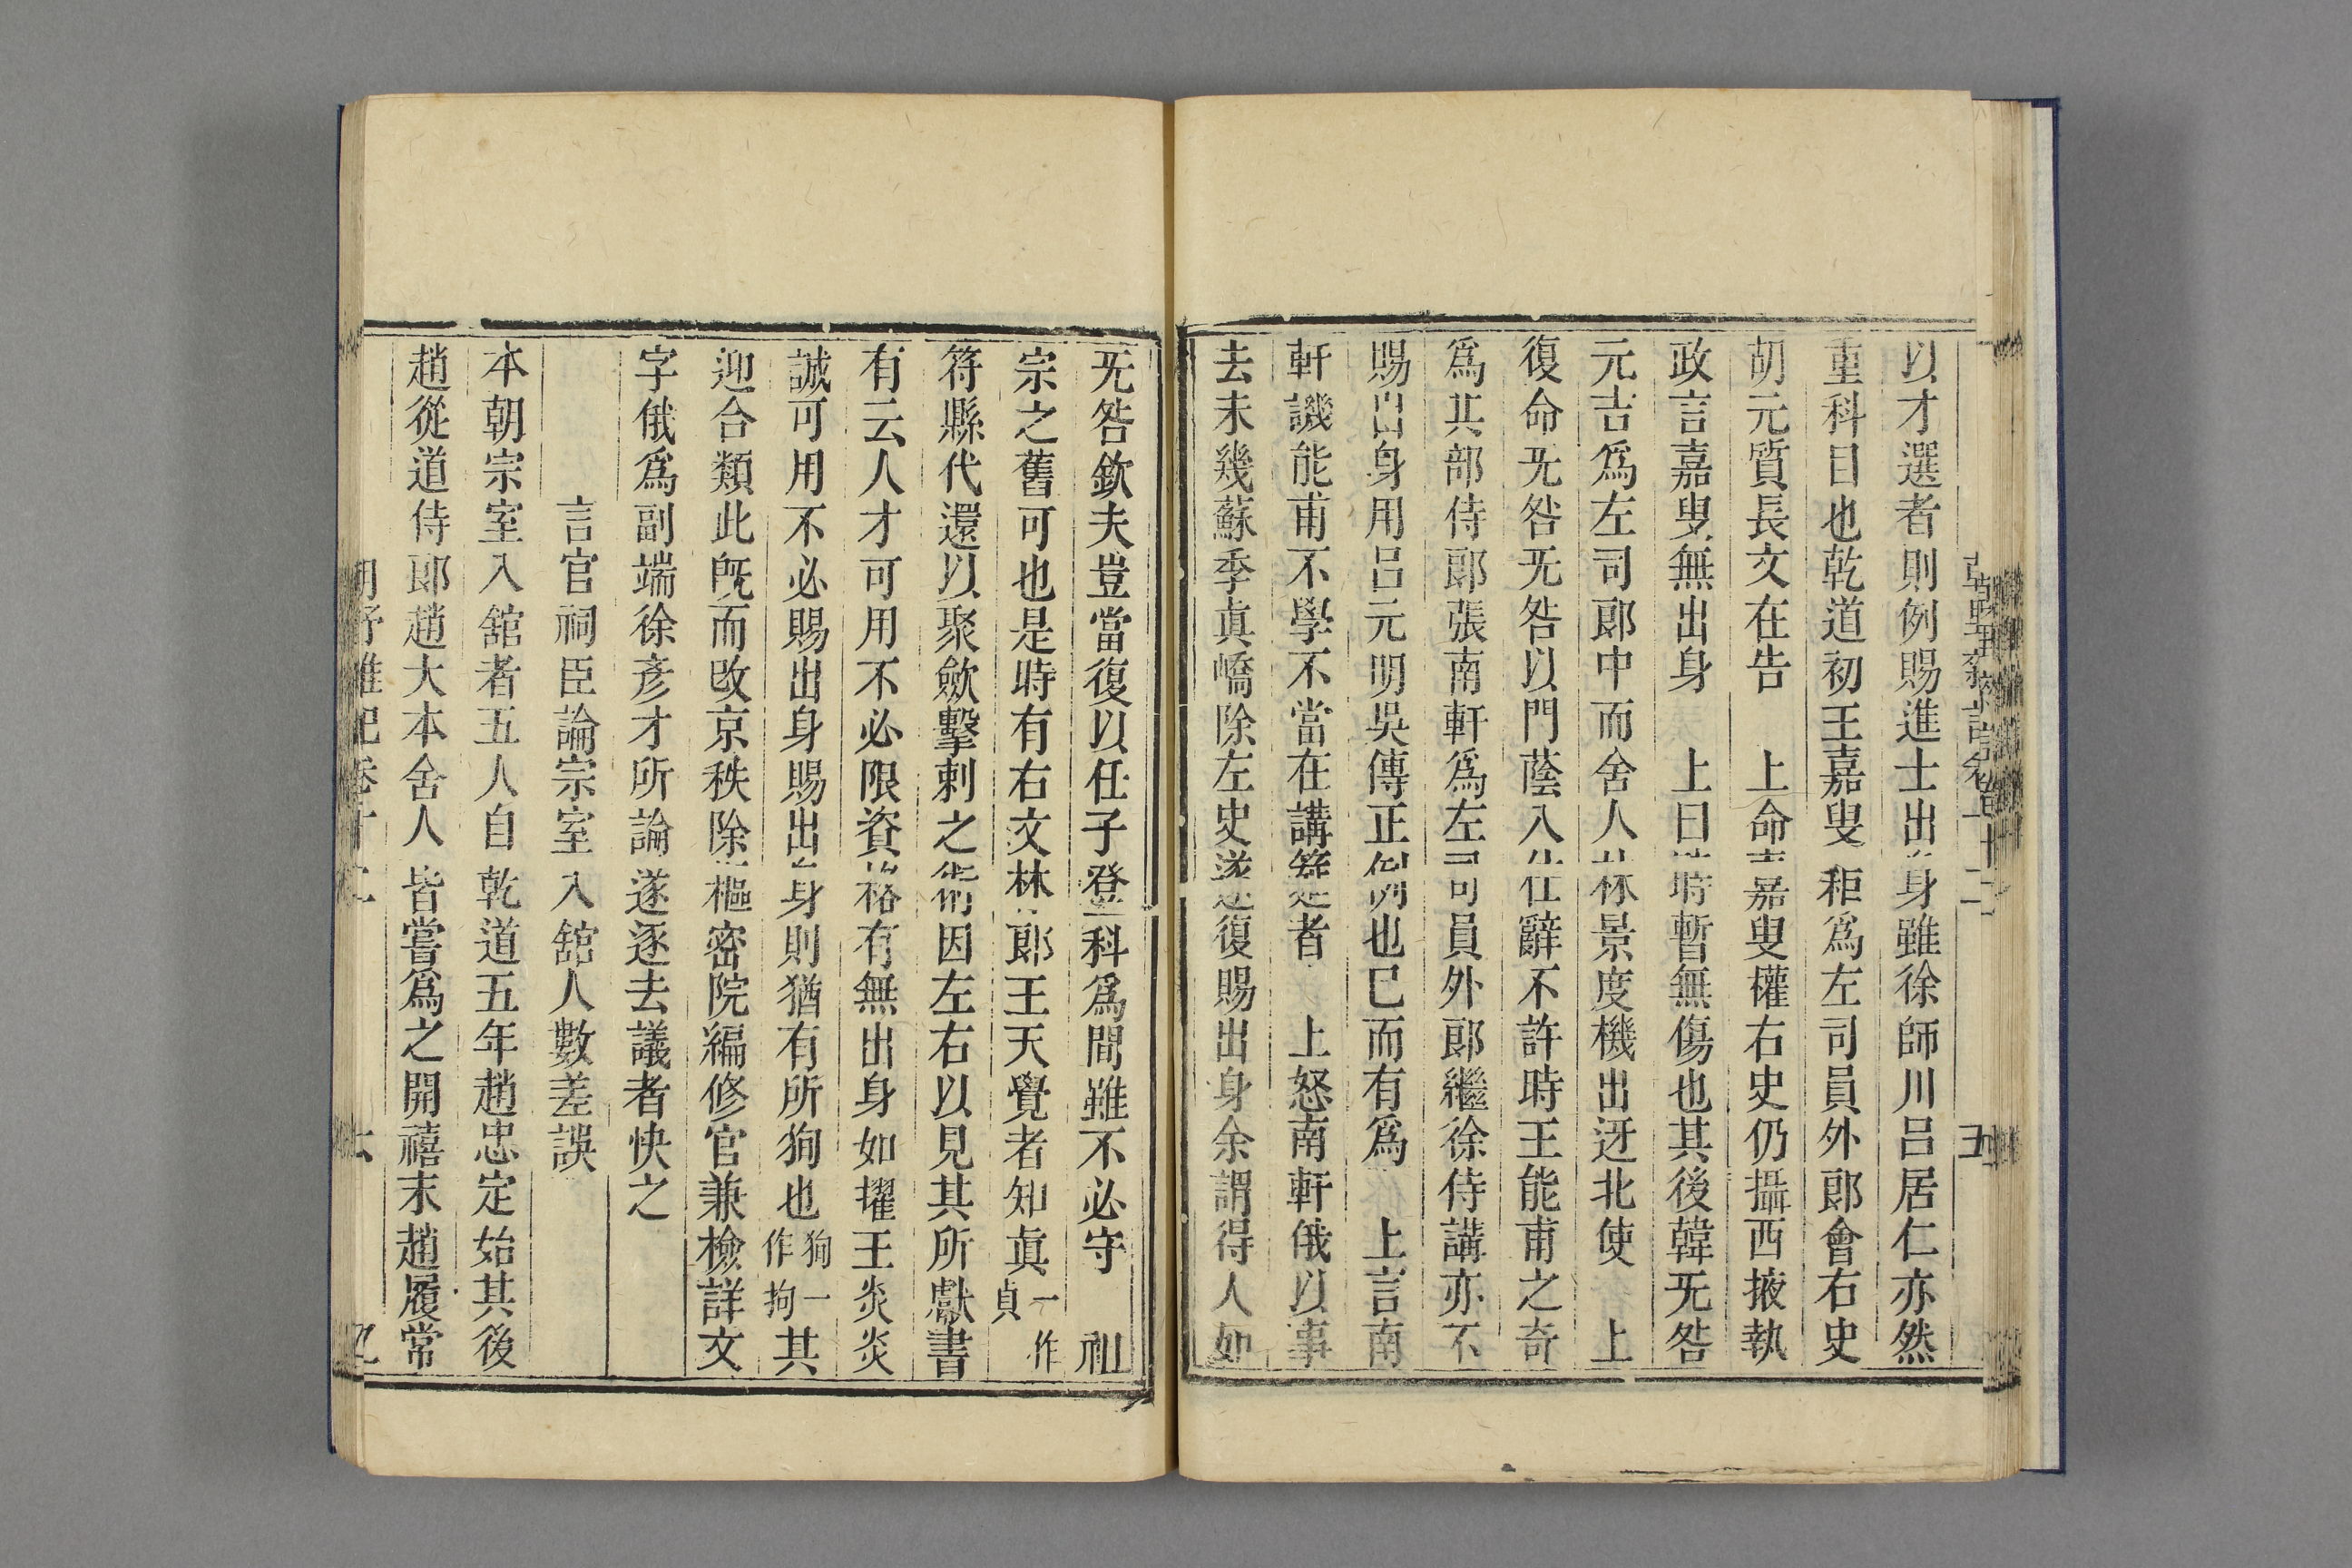 以才選者則例賜進士出身雖徐師川呂居仁亦然
重科目也乾道初王嘉叟秬爲左司員外郎會右史
胡元質長文在告　上命嘉叟權右史仍攝西掖執
政言嘉叟無出身　上曰時暫無傷也其後韓旡咎
元吉爲左司郎中而舍人林景度機出迓北使　上
復命旡咎旡咎以門蔭入仕辭不許時王能甫之奇
爲其部侍郎張南軒爲左司員外郎繼徐侍講亦不
賜出身用呂元明吳傳正例也已而有爲　上言南
軒譏能甫不學不當在講筵者　上怒南軒俄以事
去未幾蘇季真嶠除左史遂復賜出身余謂得人如
旡咎欽夫豈當復以任子登科爲間雖不必守　祖
宗之舊可也是時有右文林郎王天覺者知真一作貞
符縣代還以聚斂擊剌之術因左右以見其所獻書
有云人才可用不必限資格有無出身如擢王炎炎
誠可用不必賜出身賜出身則猶有所狥也狥一作拘其
迎合類此旣而改京秩除樞密院編修官兼檢詳文
字俄爲副端徐彥才所論遂逐去議者快之
言官祠臣論宗室入舘人數差誤
本朝宗室入舘者五人自乾道五年趙忠定始其後
趙從道侍郎趙大本舍人皆嘗爲之開禧末趙履常